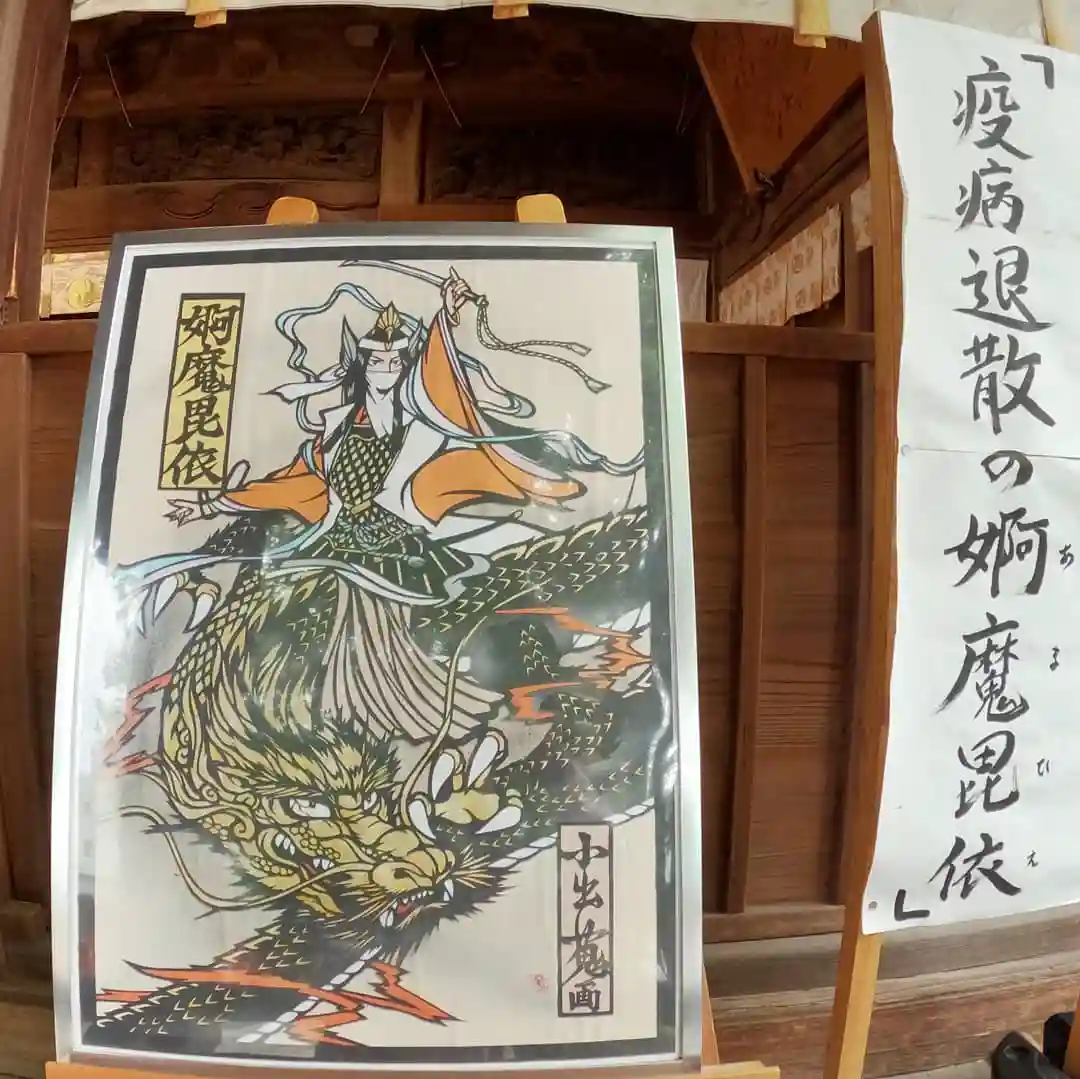 「疫病退散の婀魔毘依」
あまびえ
婀魔毘依
小出蒐画